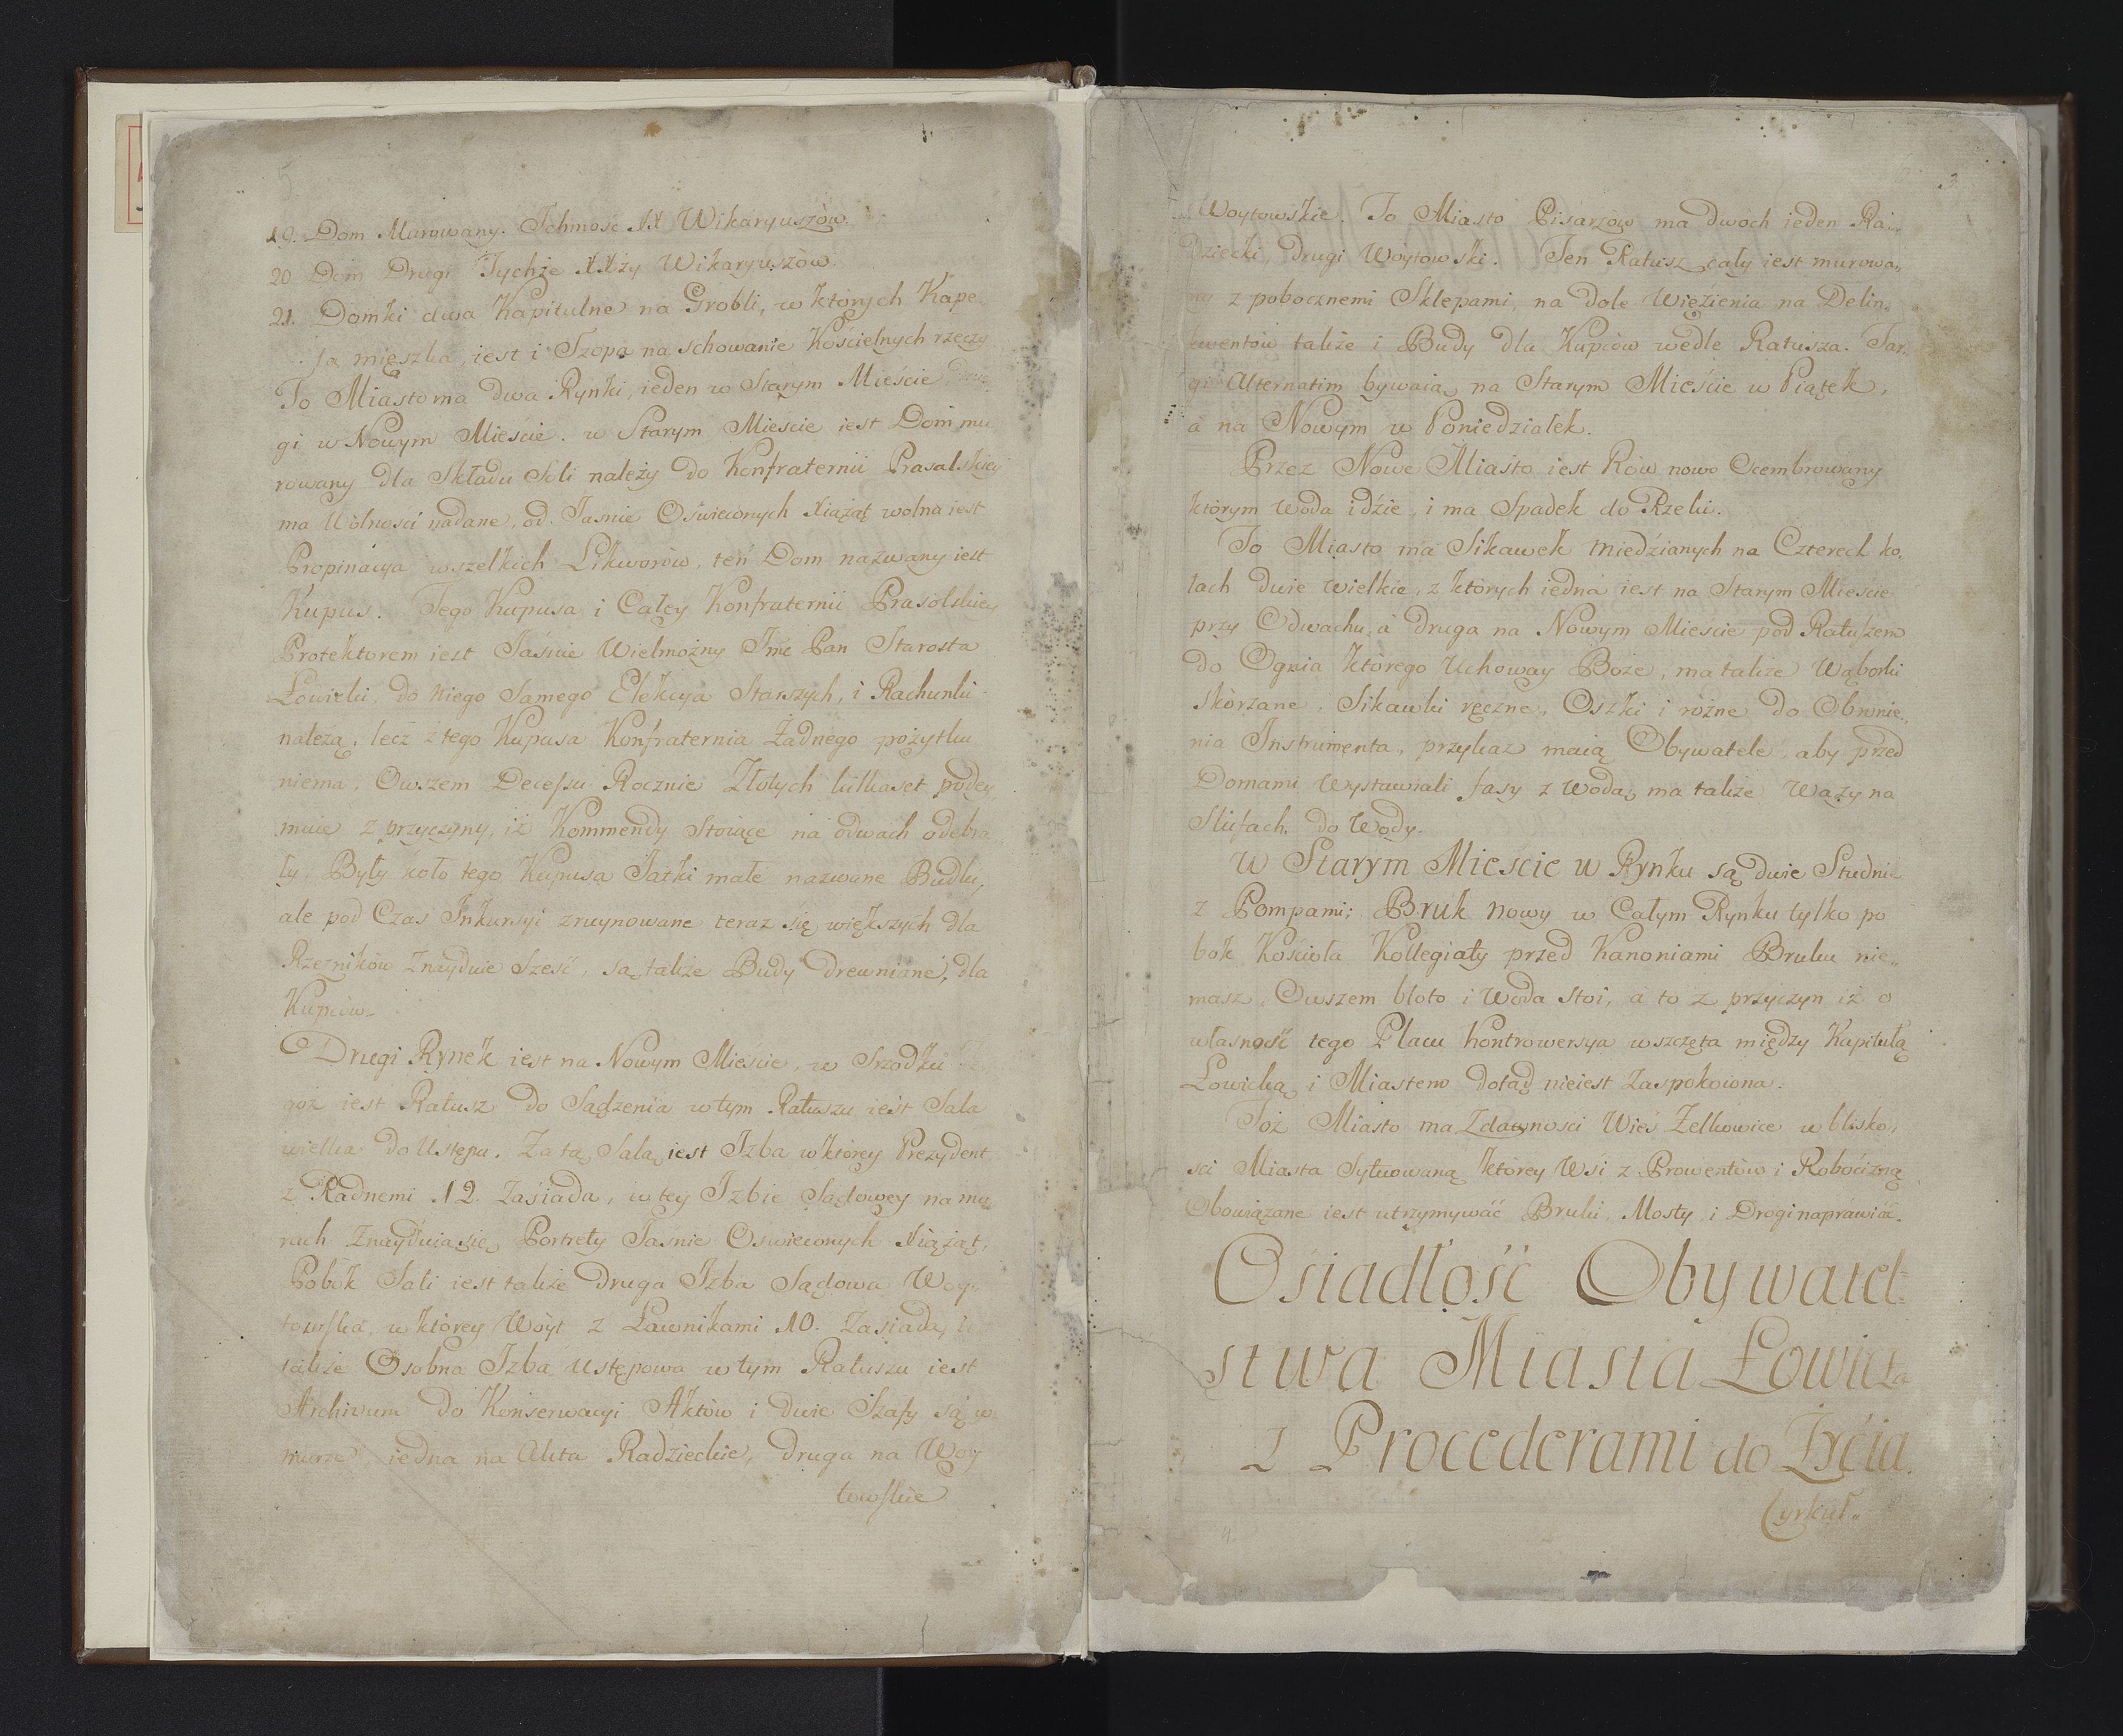 5
19. Dom Murowany. Ichmość XX Wikaryuszów.
20 Dom Drugi Tychże XXży Wikaryuszów.
21. Domki dwa Kapitulne na Grobli, w których Kape-
la mięszka, iest i Szopa na schowanie Kościelnych rzeczy
To Miasto ma dwa Rynki, ieden w Starym Mieście, dru
gi w Nowym Mieście. w Starym Mieście iest Dom mu
rowany dla Składu Soli należy do Konfraternii Prasalskiey
ma Wolności nadane, od Jasnie Oświeconych Xiążąt wolna iest
Propinacya wszelkich Likworów, ten Dom nazwany iest
Kupus. Tego Kupusa i Całey Konfraternii Prasolskiey
Protektorem iest Jaśnie Wielmożny Jmć Pan Starosta
Łowicki, do niego Samego Elekcya Starszych, i Rachunki
należą, lecz z tego Kupusa Konfraternia Żadnego pożytku
niema, Owszem Decessu Rocznie Złotych kilkaset podey
muie z przyczyny, iż Kommendy Stoiące na odwach odebra
ły. Były koło tego Kupusa Jatki małe nazwane Budki,
ale pod Czas Inkursyi zruynowane teraz się większych dla
Rzeźników Znayduie Sześć, są także Budy drewniane, dla
Kupców.
Drugi Rynek iest na Nowym Mieście, w Srzodku Te
goż iest Ratusz do Sądzenia w tym Ratuszu iest Sala
wielka do Ustępu. Za tą Salą iest Izba w którey Prezydent
z Radnemi 12. Zasiada, w tey Izbie Sądowey na mu
rach Znayduią się Portrety Jasnie Oswieconych Xiążąt,
Pobok Sali iest także druga Izba Sądowa Woy-
towska, w którey Woyt z Ławnikami 10. Zasiada,
także Osobna Izba Ustępowa w tym Ratuszu iest
Archivum do Konserwacyi Aktów i dwie Szafy są w
murze, iedna na Akta Radzieckie, druga na Woy
towskie
3
Woytowskie. To Miasto Pisarzów ma dwóch ieden Ra-
dziecki, drugi Woytowski. Ten Ratusz cały iest murowa„
ny z pobocznemi Sklepami, na dole Więzienia na Delin„
kwentów także i Budy dla Kupców wedle Ratusza. Tar„
gi Alternatim bywaią na Starym Mieście w Piątek,
a na Nowym w Poniedziałek.
Przez Nowe Miasto iest Rów nowo Ocembrowany
którym Woda idzie, i ma Spadek do Rzeki.
To Miasto ma Sikawek miedzianych na Czterech ko„
łach dwie wielkie, z których iedna iest na Starym Mieście
przy Odwachu, a druga na Nowym Mieście pod Ratuszem
do Ognia którego Uchoway Boże, ma także Wąborki
skórzane, Sikawki ręczne, Oszki i różne do Obronie„
nia Instrumenta, przykaz maią Obywatele, aby przed
Domami Wystawiali fasy z Wodą, ma także Wazy na
Slufach, do Wody.
W Starym Mieście w Rynku są dwie Studnie
z Pompami; Bruk nowy w Całym Rynku tylko po
bok Kościoła Kollegiaty przed Kanoniami Bruku nie„
masz, Owszem błoto i Woda stoi, a to z przyczyn iż o
własność tego Placu Kontrowersya wszczęta między Kapitułą
Łowicką i Miastem dotąd nieiest Zaspokoiona.
Toż Miasto ma Zdawności Wieś Zelkowice w blisko„
sci Miasta Sytuowaną którey Wsi z Prowentów i Robocizną
Obowiązane iest utrzymywać Bruki, Mosty, i Drogi naprawiać.
Osiadłość Obywatel=
stwa Miasta Łowicza
z Procederami do Życia.
Cyrkuł„
4.